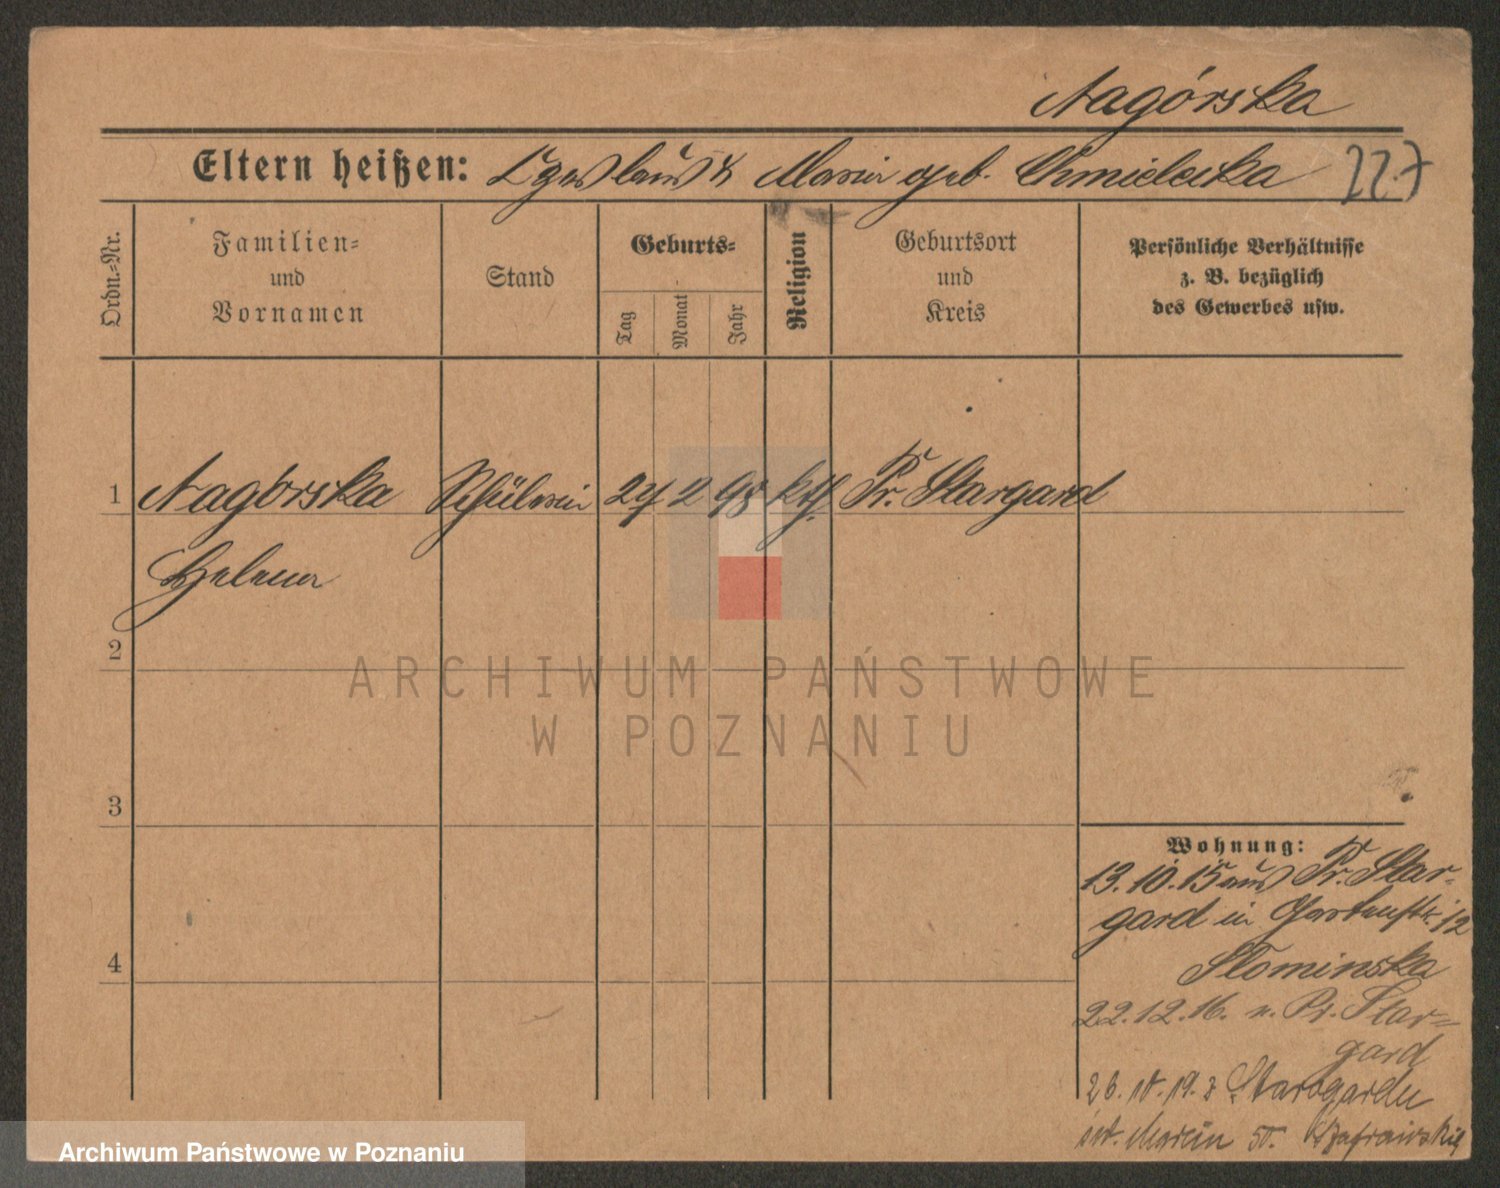 Nagórska
Eltern heißen: & Maria geb. Chmielecka 227
Ordn.-Nr.
Familien-
und
Vornamen
Stand
Geburts-
Tag
Monat
Jahr
Religion
Geburtsort
und
Kreis
Persönliche Verhältnisse
z. B. bezüglich
des Gewerbes usw.
1 Nagórska Schülerin 27 2 98 kth. Pr. Stargard
Helena
2
ARCHIWUM PAŃSTWOWE
W POZNANIU
3
4
Wohnung:
13.10.15 aus Pr. Star-
gard in Gartenstr. 12
Słominska
22.12.16. n. Pr. Star-
gard
26. 19. z Starogardu
św. Marcin 50.
Archiwum Państwowe w Poznaniu